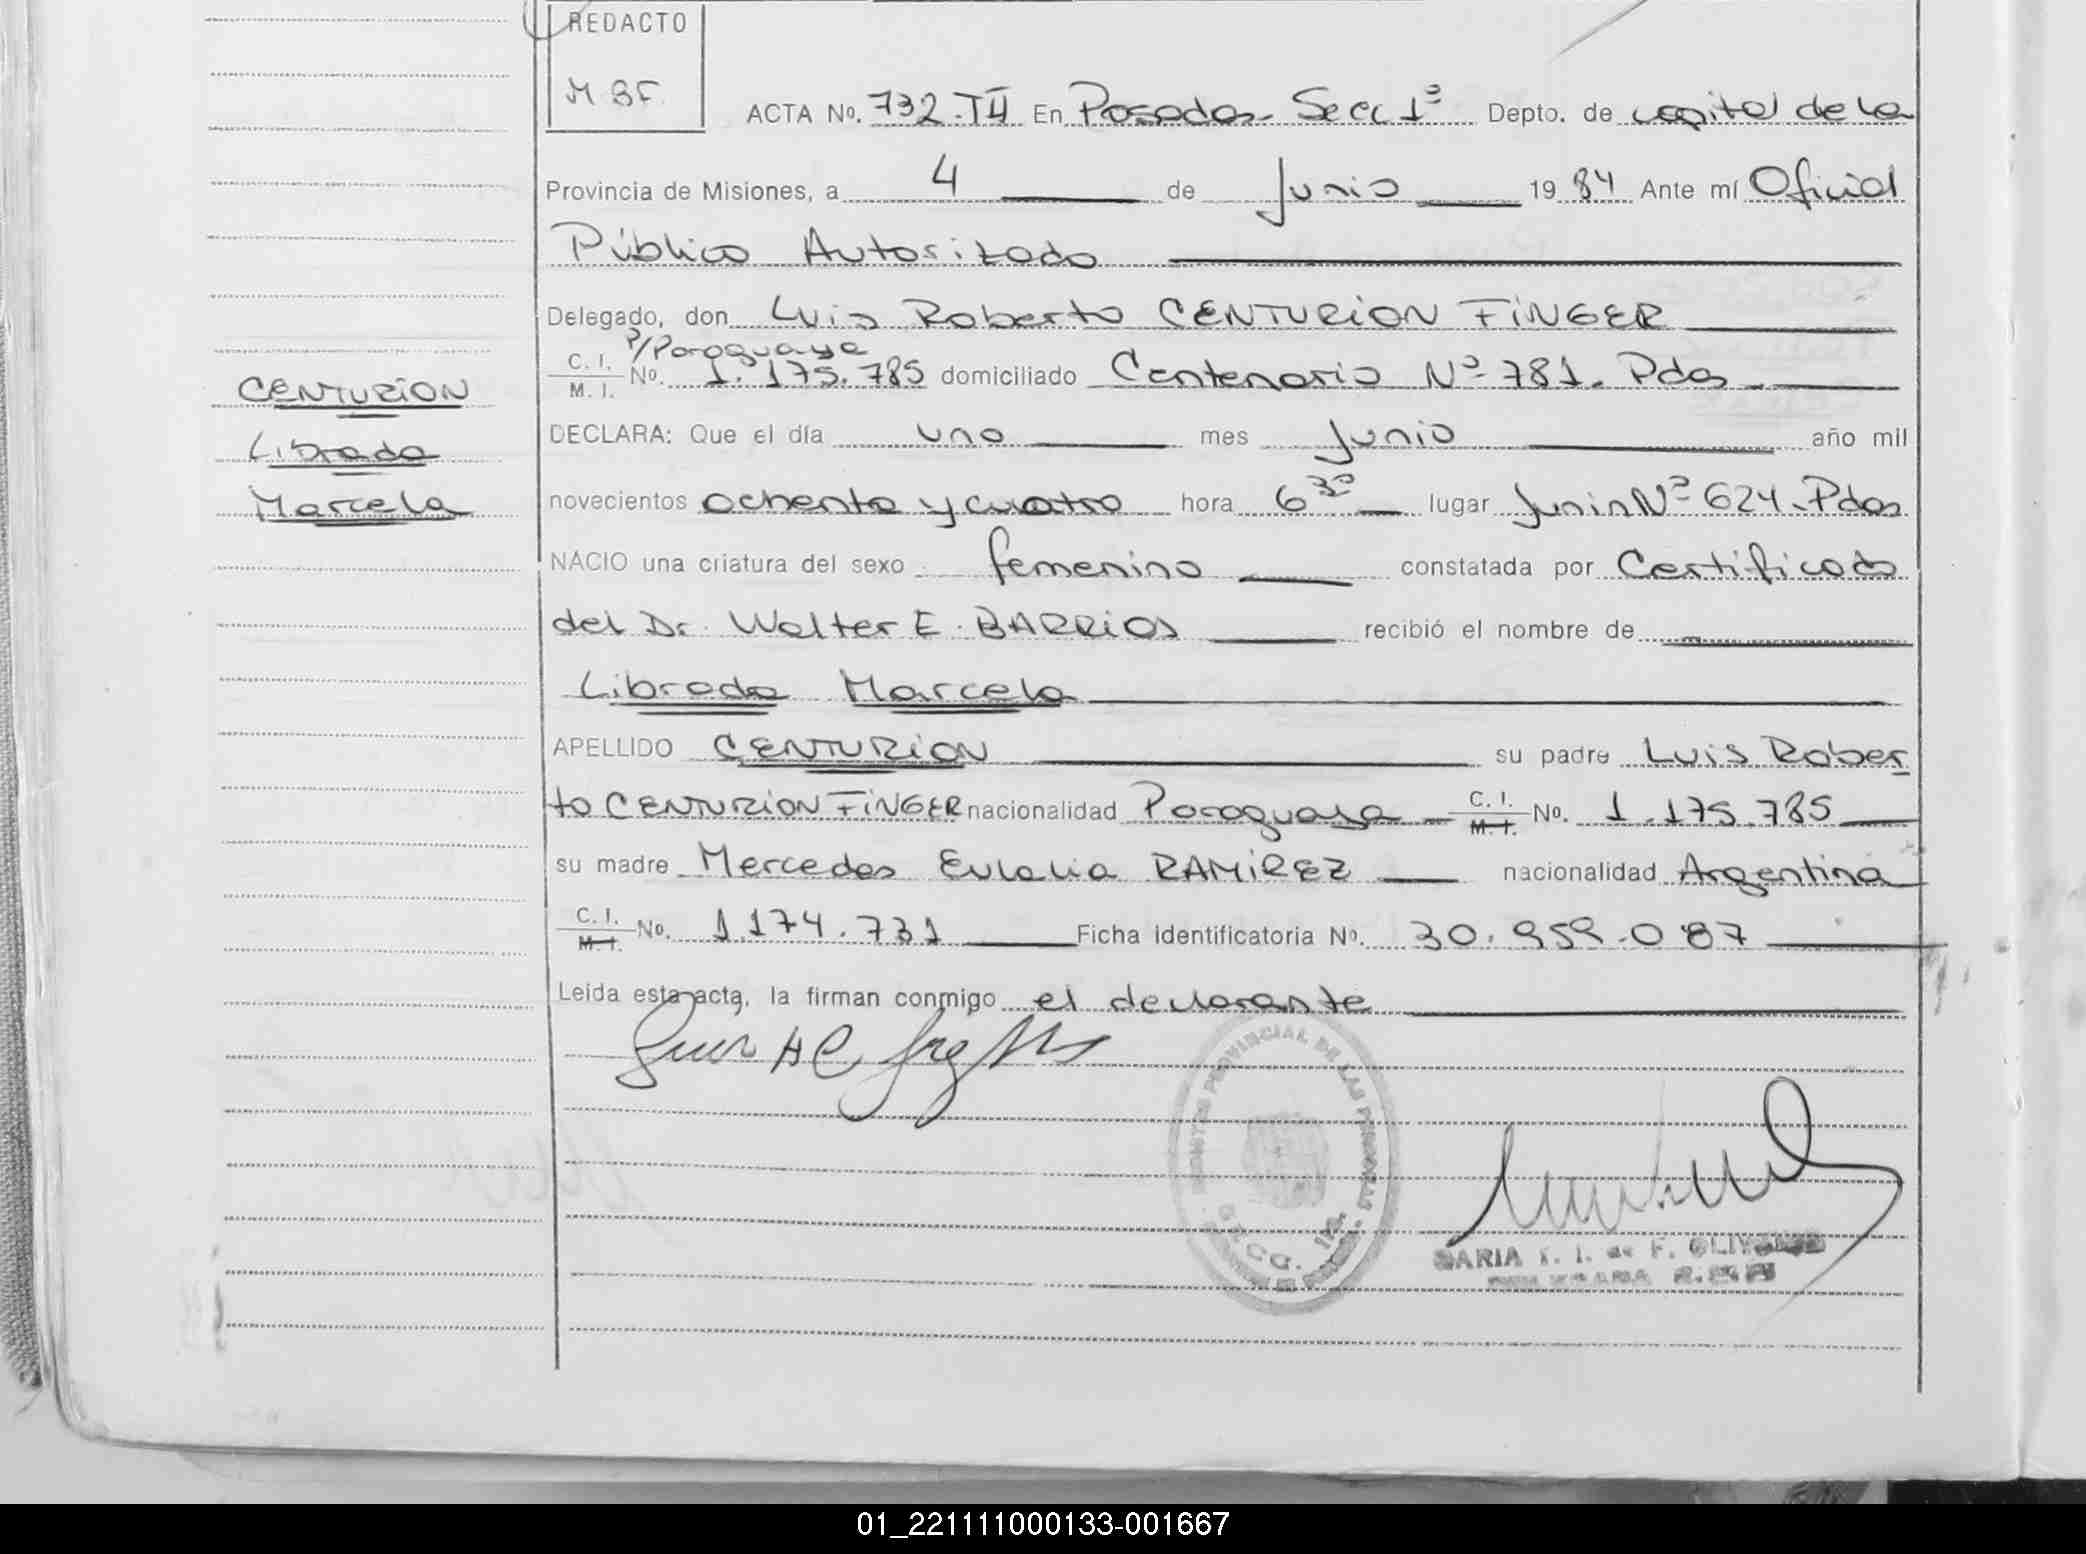 REDACTO
M B F.
ACTA No. 732.TII En Posadas Secc 1ª Depto. de capital de la
Provincia de Misiones, a 4 de Junio 19 84 Ante mí Oficial
Público Autorizado
Delegado, don Luis Roberto CENTURION FINGER
P/Paraguaya
C. I. M. I. No. 1.175.785 domiciliado Centenario Nº 781. Pdas
CENTURION
DECLARA: Que el día uno mes Junio año mil
Librada
novecientos ochenta y cuatro hora 6 30 lugar Junin Nº 624. Pdas
Marcela
NACIO una criatura del sexo femenino constatada por Certificado
del Dr. Walter E. BARRIOS recibió el nombre de
Librada Marcela
APELLIDO CENTURION su padre Luis Rober
to CENTURION FINGER nacionalidad Paraguaya C. I. M. I. No. 1.175.785
su madre Mercedes Eulalia RAMIREZ nacionalidad Argentina
C. I. M. I. No. 1.174.731 Ficha identificatoria No. 30.959.087
Leida esta acta, la firman conmigo el declarante
PROVINCIAL DE LAS PERSONAS
01_221111000133-001667